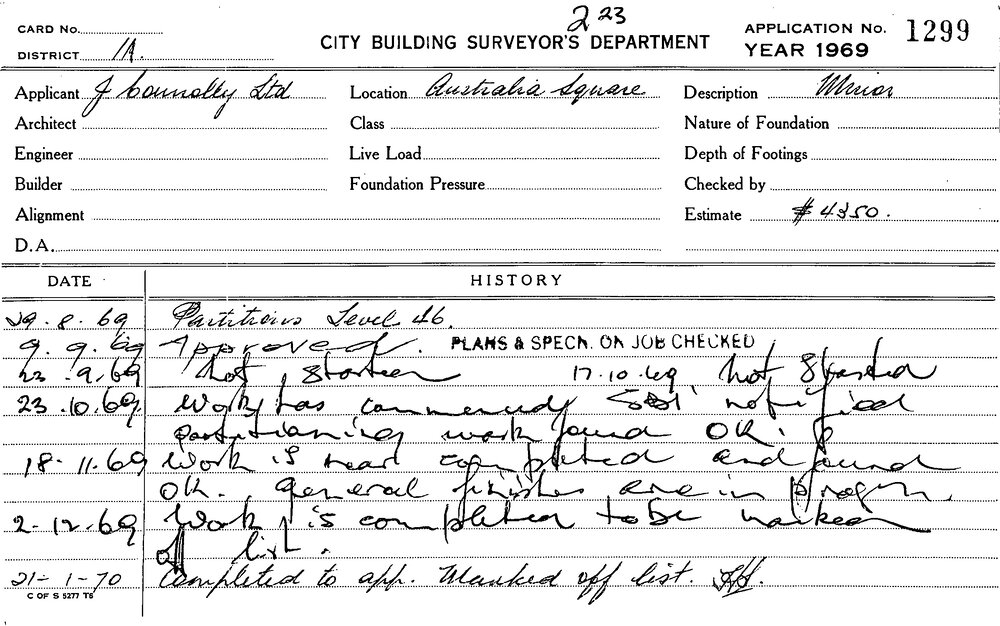 223
CARD No.
CITY BUILDING SURVEYOR'S DEPARTMENT
APPLICATION No. 1299
DISTRICT 1A.
YEAR 1969
Applicant J Connolly Ltd Location Australia Square Description Minor
Architect Class Nature of Foundation
Engineer Live Load Depth of Footings
Builder Foundation Pressure Checked by
Alignment Estimate $4350.
D.A.
DATE HISTORY
29.8.69 Partitions Level 46.
9.9.69 Approved. PLANS & SPECN. ON JOB CHECKED
23.9.69 Not started 17.10.69 Not started
23.10.69 Work has commenced notified
partitioning work found OK.
18-11.69 Work is near completed and found
OK. General finishes are in progress.
2-12.69 Work is completed to be marked
off list.
21-1-70 Completed to app. Marked off list.
C OF S 5277 T6